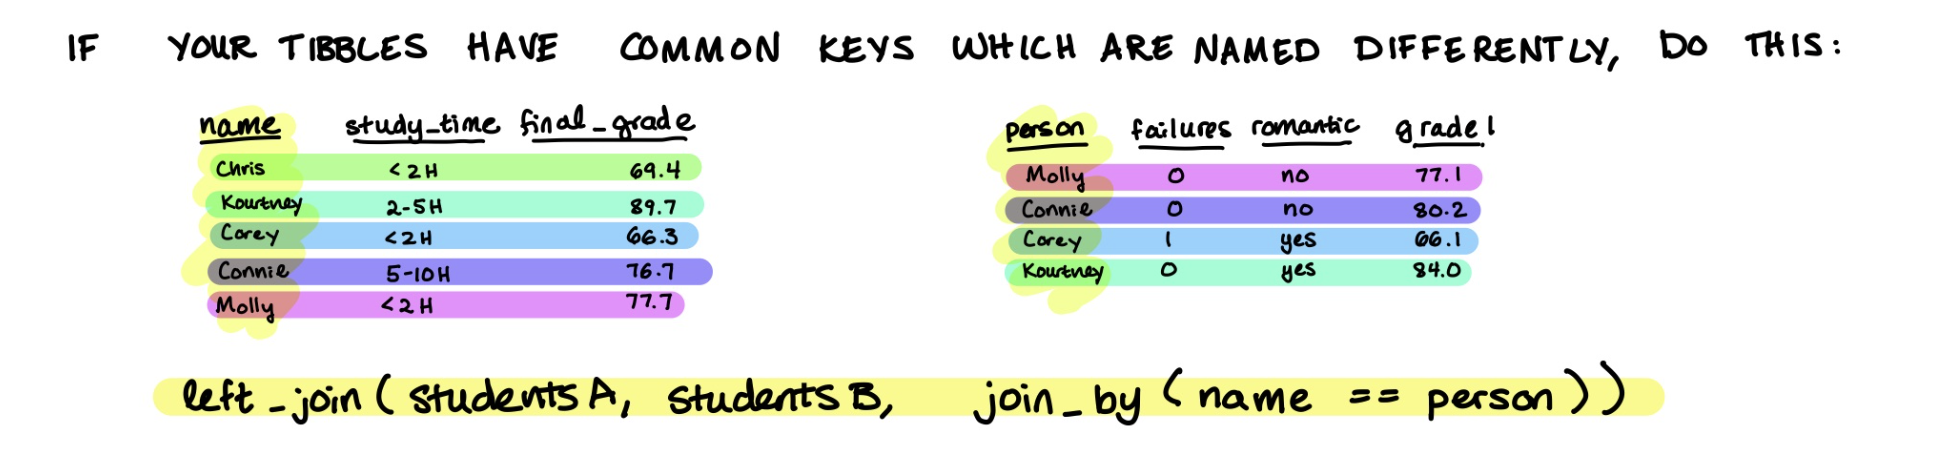 IF YOUR TIBBLES HAVE COMMON KEYS WHICH ARE NAMED DIFFERENTLY, DO THIS:
name study_time final_grade
Chris <2H 69.4
Kourtney 2-5H 89.7
Corey <2H 66.3
Connie 5-10H 76.7
Molly <2H 77.7
person failures romantic grade1
Molly 0 no 77.1
Connie 0 no 80.2
Corey 1 yes 66.1
Kourtney 0 yes 84.0
left_join(studentsA, studentsB, join_by(name == person))